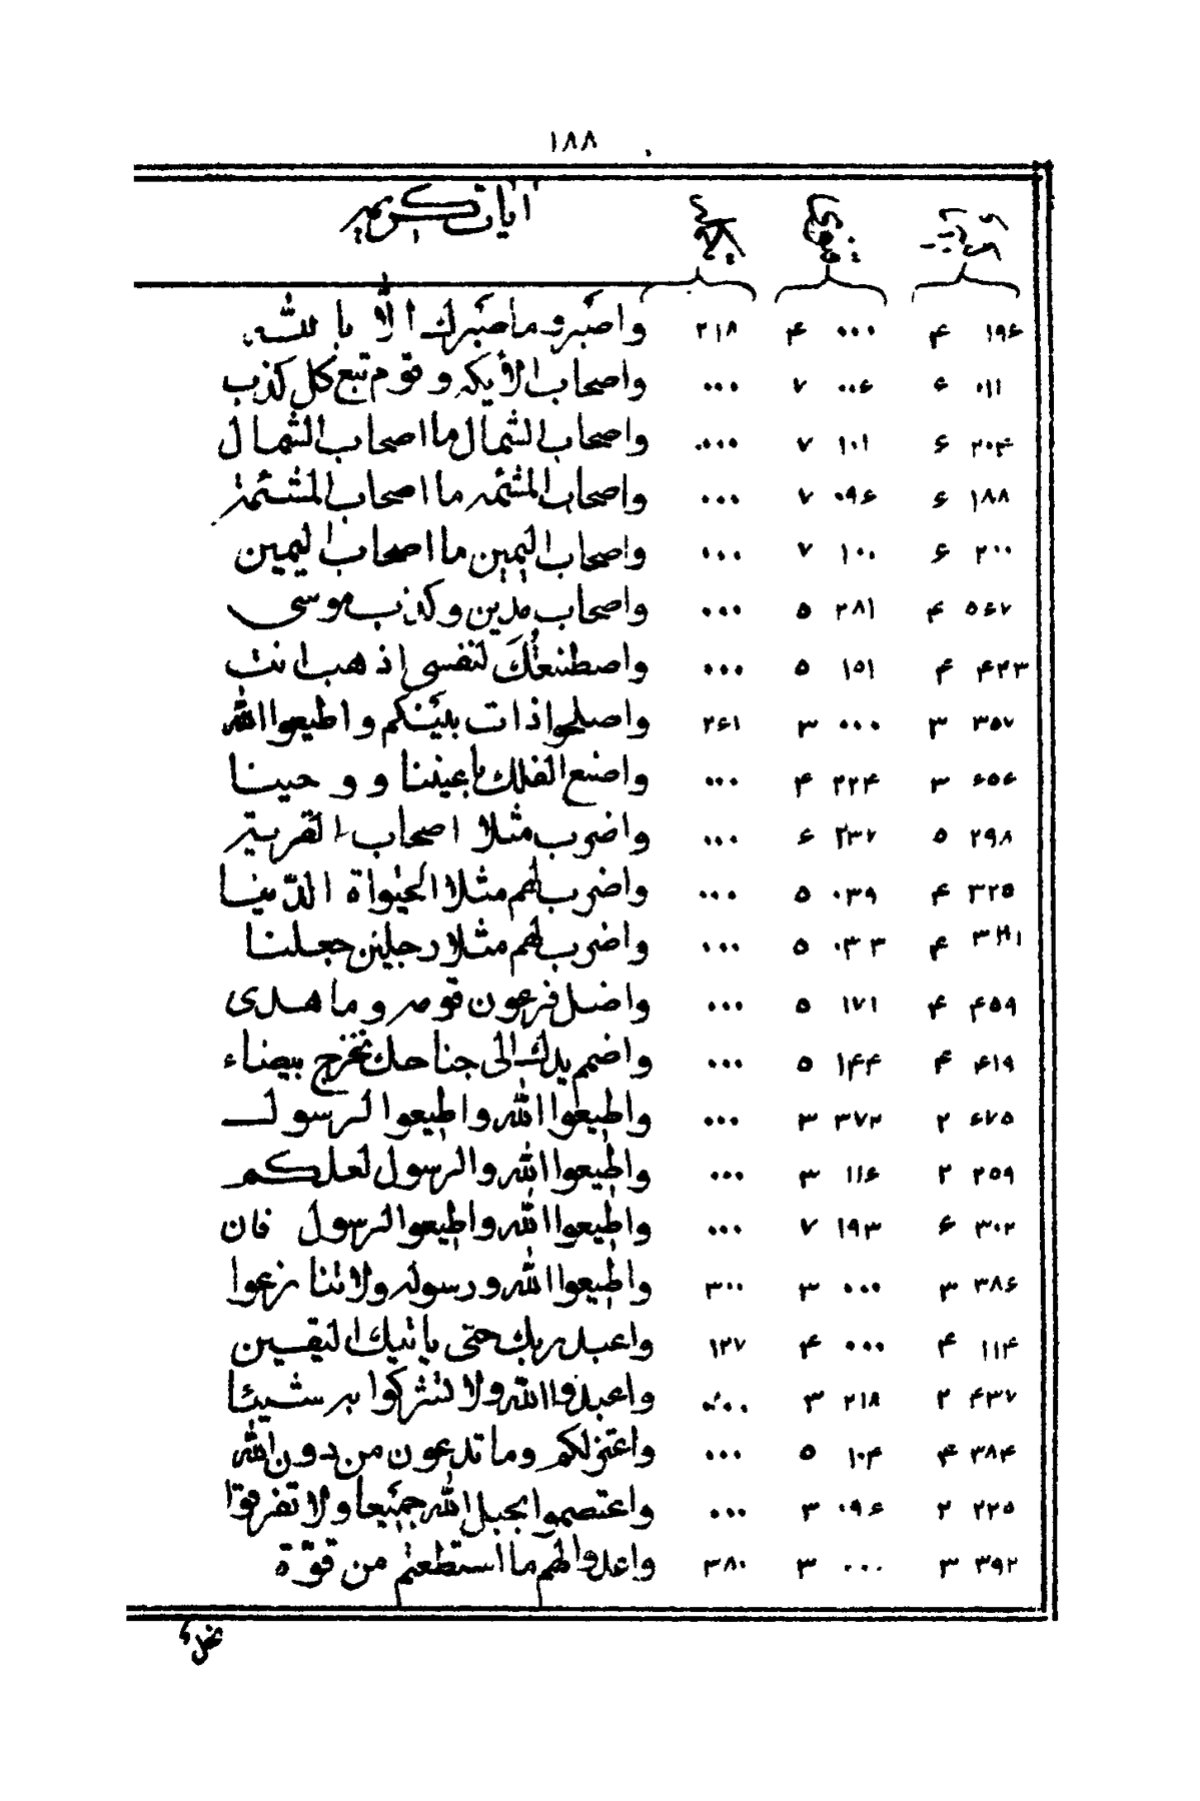 ١٨٨
آيات كريمه
١٩۶ ۴ ٠٠٠ ۴ ٢١٨ واصبر وما صبرك الّا بالله
٠١١ ۶ ٠٠۶ ٧ ٠٠٠ واصحاب الأيكه وقوم تبع كل كذب
٢٠۴ ۶ ١٠١ ٧ ٠٠٠ واصحاب الشمال ما اصحاب الشمال
١٨٨ ۶ ٠٩۶ ٧ ٠٠٠ واصحاب المشئمه ما اصحاب المشئمة
٢٠٠ ۶ ١٠٠ ٧ ٠٠٠ واصحاب اليمين ما اصحاب اليمين
۵۶٧ ۴ ٢٨١ ۵ ٠٠٠ واصحاب مدين وكذب موسى
۴٢٣ ۴ ١۵١ ۵ ٠٠٠ واصطنعتُكَ لنفسى اذهب انت
٣۵٧ ٣ ٠٠٠ ٣ ٢۶١ واصلحوا ذات بينكم واطيعوا الله
۶۵۶ ٣ ٢٢۴ ۴ ٠٠٠ واصنع الفلك باعيننا ووحينا
٢٩٨ ۵ ٢٣٧ ۶ ٠٠٠ واضرب مثلا اصحاب القرية
٣٢۵ ۴ ٠٣٩ ۵ ٠٠٠ واضرب لهم مثلا الحيواة الدّنيا
۴ ٠٣٣ ۵ ٠٠٠ واضرب لهم مثلا رجلين جعلنا
۴۵٩ ۴ ١٧١ ۵ ٠٠٠ واضل فرعون قومه وما هدى
۴١٩ ۴ ١۴۴ ۵ ٠٠٠ واضمم يدك الى جناحك تخرج بيضاء
۶٧۵ ٢ ٣٧٢ ٣ ٠٠٠ واطيعوا الله واطيعوا الرسول
٢۵٩ ٢ ١١۶ ٣ ٠٠٠ واطيعوا الله والرسول لعلكم
٣٠٢ ۶ ١٩٣ ٧ ٠٠٠ واطيعوا الله واطيعوا الرسول فان
٣٨۶ ٣ ٠٠٠ ٣ ٣٠٠ واطيعوا الله ورسوله ولا تنازعوا
١١۴ ۴ ٠٠٠ ۴ ١٢٧ واعبد ربك حتى ياتيك اليقين
۴٣٧ ٢ ٢١٨ ٣ ٠٠٠ واعبدوا الله ولا تشركوا به شيئا
٣٨۴ ۴ ١٠۴ ۵ ٠٠٠ واعتزلكم وما تدعون من دون الله
٢٢۵ ٢ ٠٩۶ ٣ ٠٠٠ واعتصموا بحبل الله جميعا ولا تفرقوا
٣٩٢ ٣ ٠٠٠ ٣ ٣٨٠ واعدوا لهم ما استطعتم من قوّة